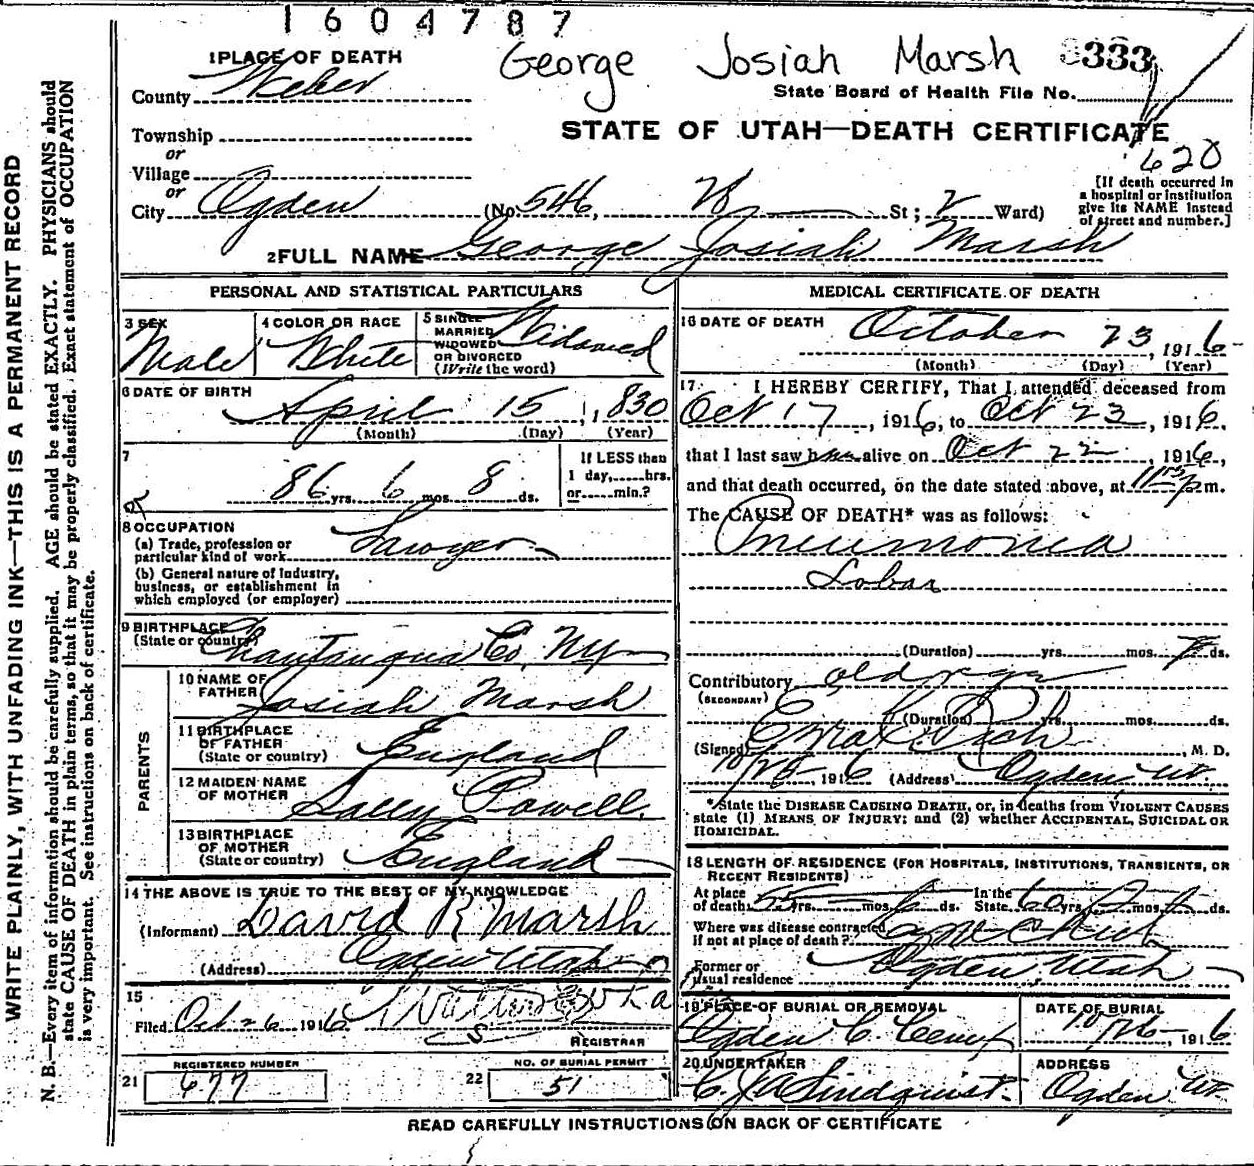 1604787
George Josiah Marsh 333
1 PLACE OF DEATH
County Weber
State Board of Health File No.
Township
STATE OF UTAH—DEATH CERTIFICATE
or
620
Village
or
City Ogden (No 546, 28 St; 2 Ward)
[If death occurred in
a hospital or institution
give its NAME instead
of street and number.]
2 FULL NAME George Josiah Marsh
PERSONAL AND STATISTICAL PARTICULARS
3 SEX
Male
4 COLOR OR RACE
White
5 SINGLE
MARRIED
WIDOWED
OR DIVORCED
(Write the word)
Widowed
6 DATE OF BIRTH
April 15, 1830
(Month) (Day) (Year)
7
86 yrs. 6 mos. 8 ds.
If LESS than
1 day, hrs.
or min.?
8 OCCUPATION
(a) Trade, profession or
particular kind of work Lawyer
(b) General nature of industry,
business, or establishment in
which employed (or employer)
9 BIRTHPLACE
(State or country)
Chautauqua Co. NY
PARENTS
10 NAME OF
FATHER
Josiah Marsh
11 BIRTHPLACE
OF FATHER
(State or country)
England
12 MAIDEN NAME
OF MOTHER
Sally Powell
13 BIRTHPLACE
OF MOTHER
(State or country)
England
14 THE ABOVE IS TRUE TO THE BEST OF MY KNOWLEDGE
(Informant) David R Marsh
(Address) Ogden Utah
15
Filed Oct 26 1916
REGISTRAR
REGISTERED NUMBER
21 477
NO. OF BURIAL PERMIT
22 51
MEDICAL CERTIFICATE OF DEATH
16 DATE OF DEATH
October 23, 1916
(Month) (Day) (Year)
17 I HEREBY CERTIFY, That I attended deceased from
Oct 17, 1916, to Oct 23, 1916.
that I last saw him alive on Oct 22, 1916,
and that death occurred, on the date stated above, at m.
The CAUSE OF DEATH* was as follows:
Pneumonia
Lobar
(Duration) yrs. mos. 7 ds.
Contributory old age
(SECONDARY)
(Duration) yrs. mos. ds.
(Signed) Ezra C Rich, M. D.
1916 (Address) Ogden Ut.
*State the DISEASE CAUSING DEATH, or, in deaths from VIOLENT CAUSES
state (1) MEANS OF INJURY; and (2) whether ACCIDENTAL, SUICIDAL OR
HOMICIDAL.
18 LENGTH OF RESIDENCE (FOR HOSPITALS, INSTITUTIONS, TRANSIENTS, OR
RECENT RESIDENTS)
At place
of death 55 yrs. mos. ds. In the
State 60 yrs. mos. ds.
Where was disease contracted
if not at place of death?
Former or
usual residence Ogden Utah
19 PLACE OF BURIAL OR REMOVAL
Ogden C. Cemy
DATE OF BURIAL
10/26, 1916
20 UNDERTAKER
Lindquist
ADDRESS
Ogden Ut
READ CAREFULLY INSTRUCTIONS ON BACK OF CERTIFICATE
WRITE PLAINLY, WITH UNFADING INK—THIS IS A PERMANENT RECORD
N. B.—Every item of information should be carefully supplied. AGE should be stated EXACTLY. PHYSICIANS should
state CAUSE OF DEATH in plain terms, so that it may be properly classified. Exact statement of OCCUPATION
is very important. See instructions on back of certificate.